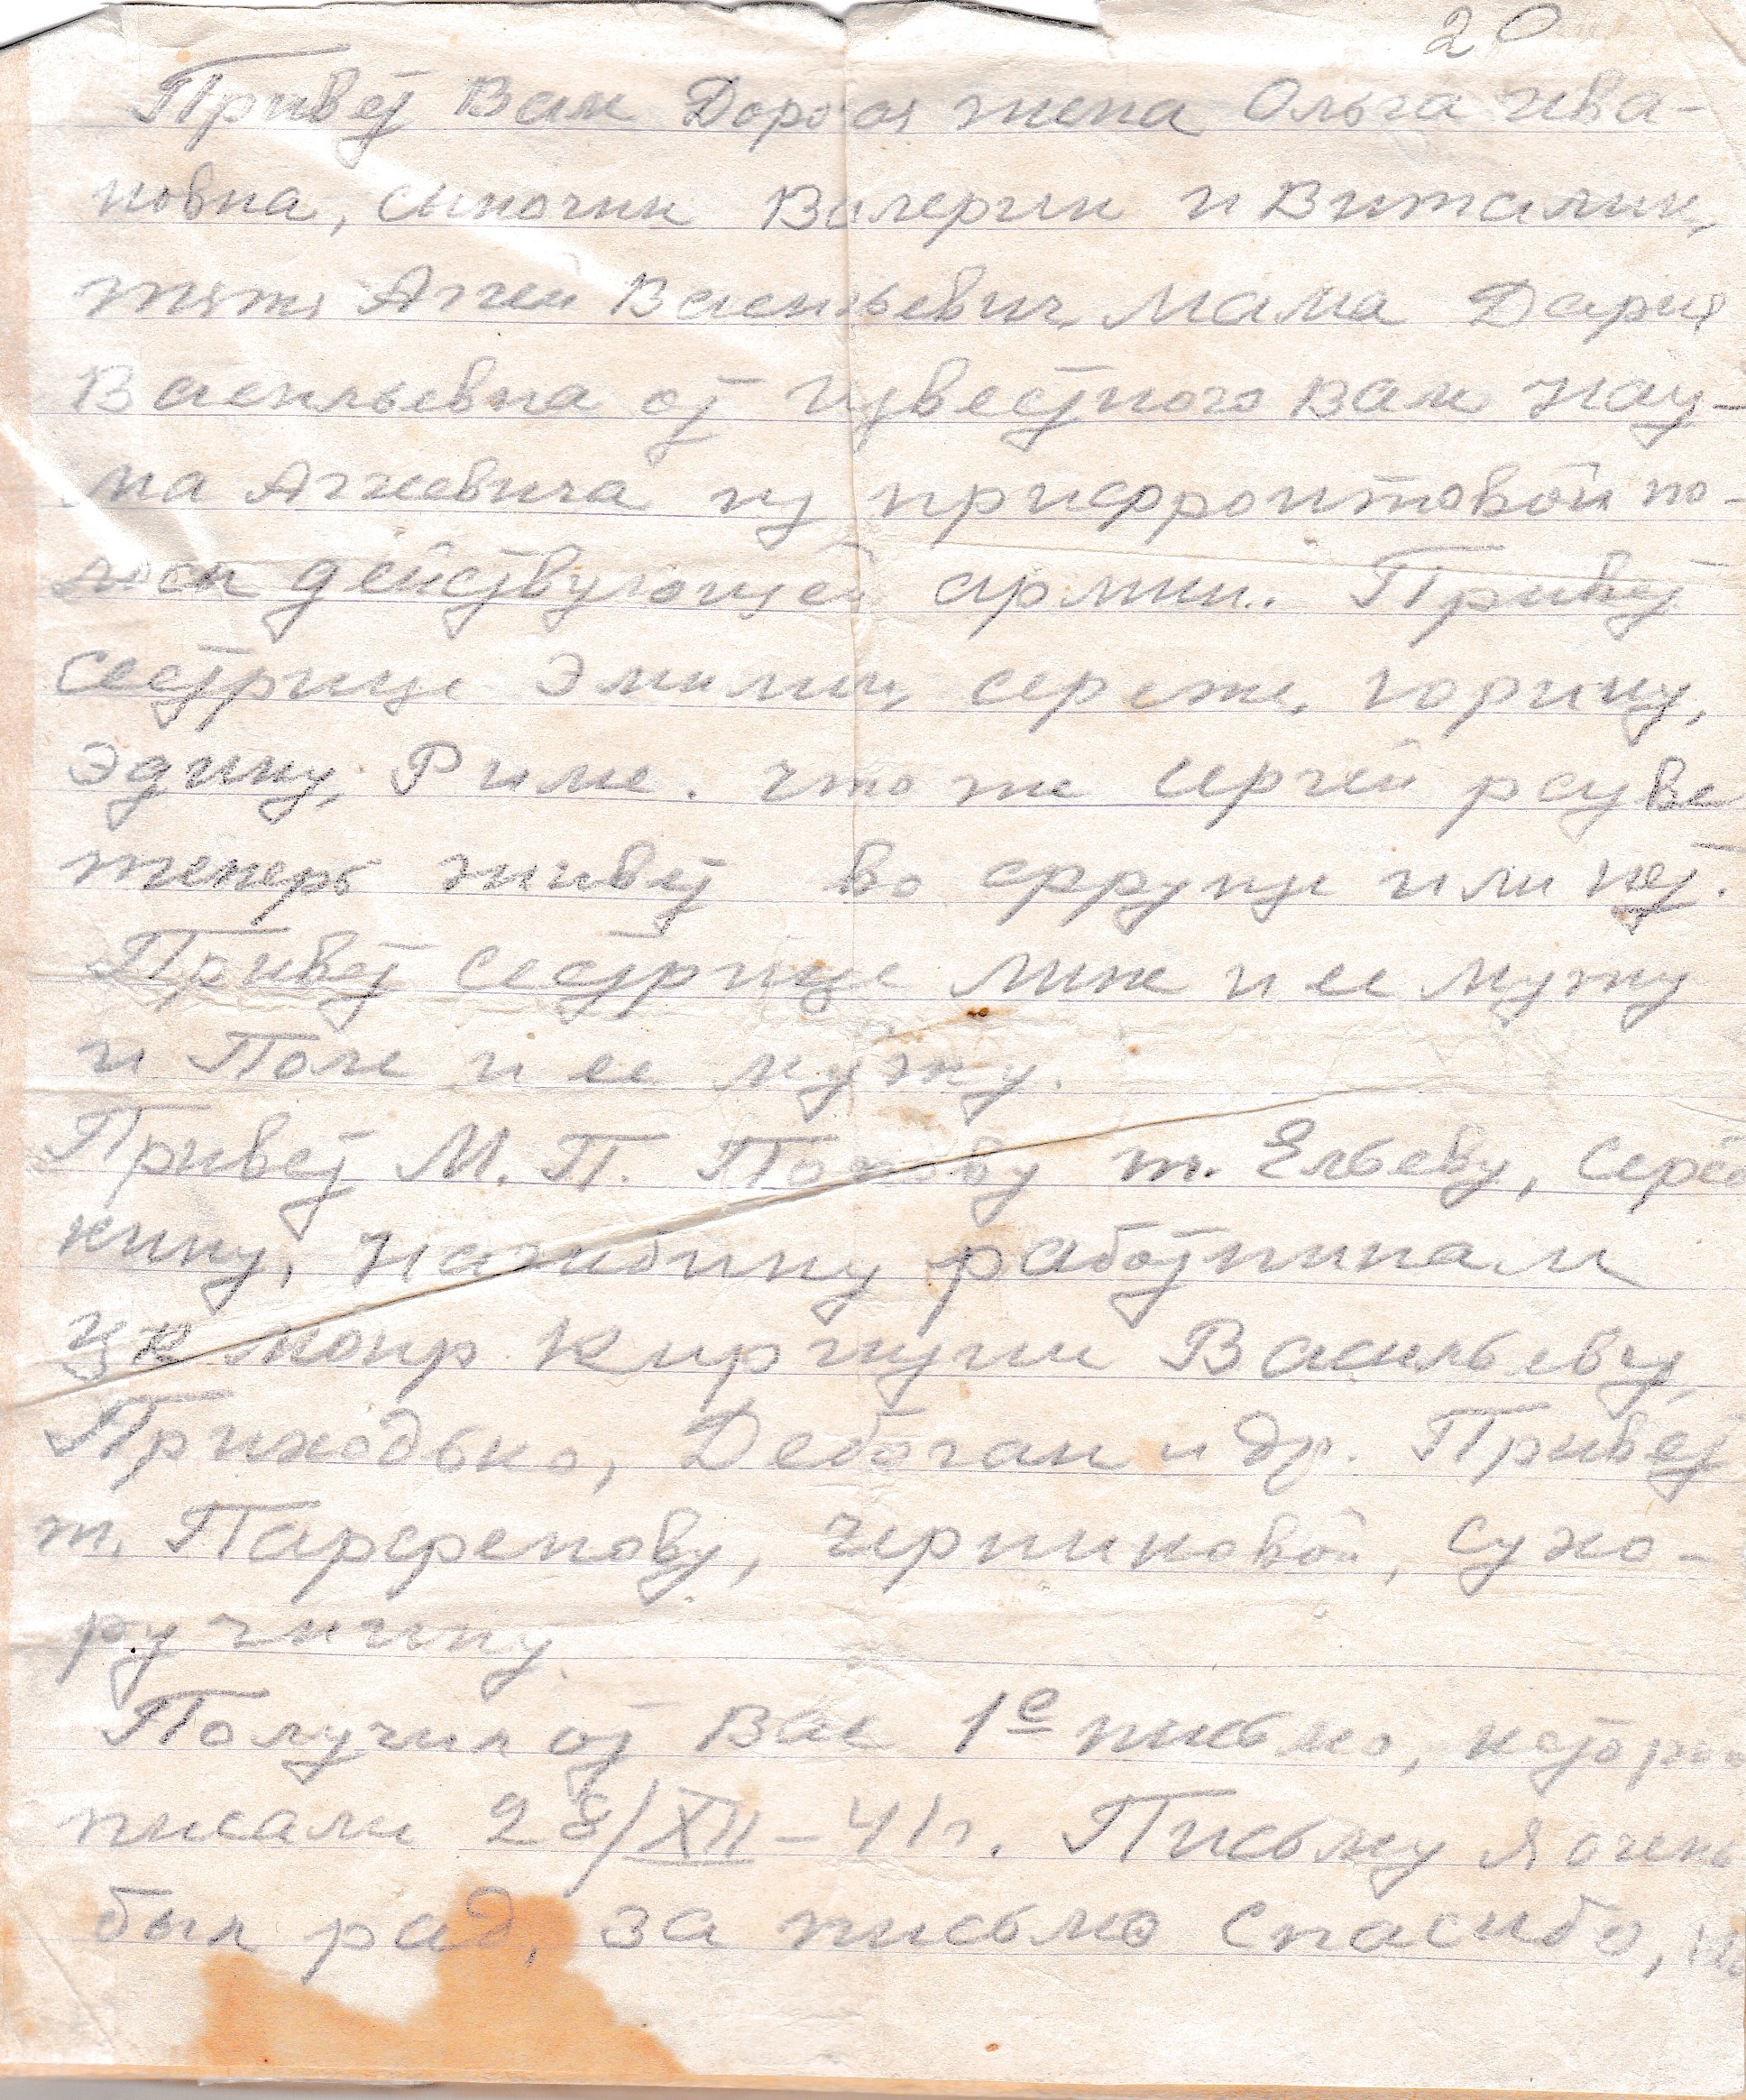 20
Привет Вам Дорогая жена Ольга Ива-
новна, сыночки Валерик и Виталик,
тятя Аггей Васильевич, мама Дария
Васильевна от известного Вам Нау-
ма Аггеевича из прифронтовой по-
лосы действующей армии. Привет
сестрице Эмилии, Сереже, Юрику,
Эдику, Риме. Что же Сергей разве
теперь живет во Фрунзе или нет.
Привет сестрице Лизе и ее мужу
и Поле и ее мужу.
Привет М. П. Попову т. Ельеву, Серё
кину, работникам
ЦК мопр Киргизии Васильеву,
Приходько, Дебоган и др. Привет
т. Парфенову, Черниковой, Сухо-
ручкину.
Получил от Вас 1е письмо, которое
писали 28/XII-41г. Письму я очень
был рад, за письмо спасибо, но